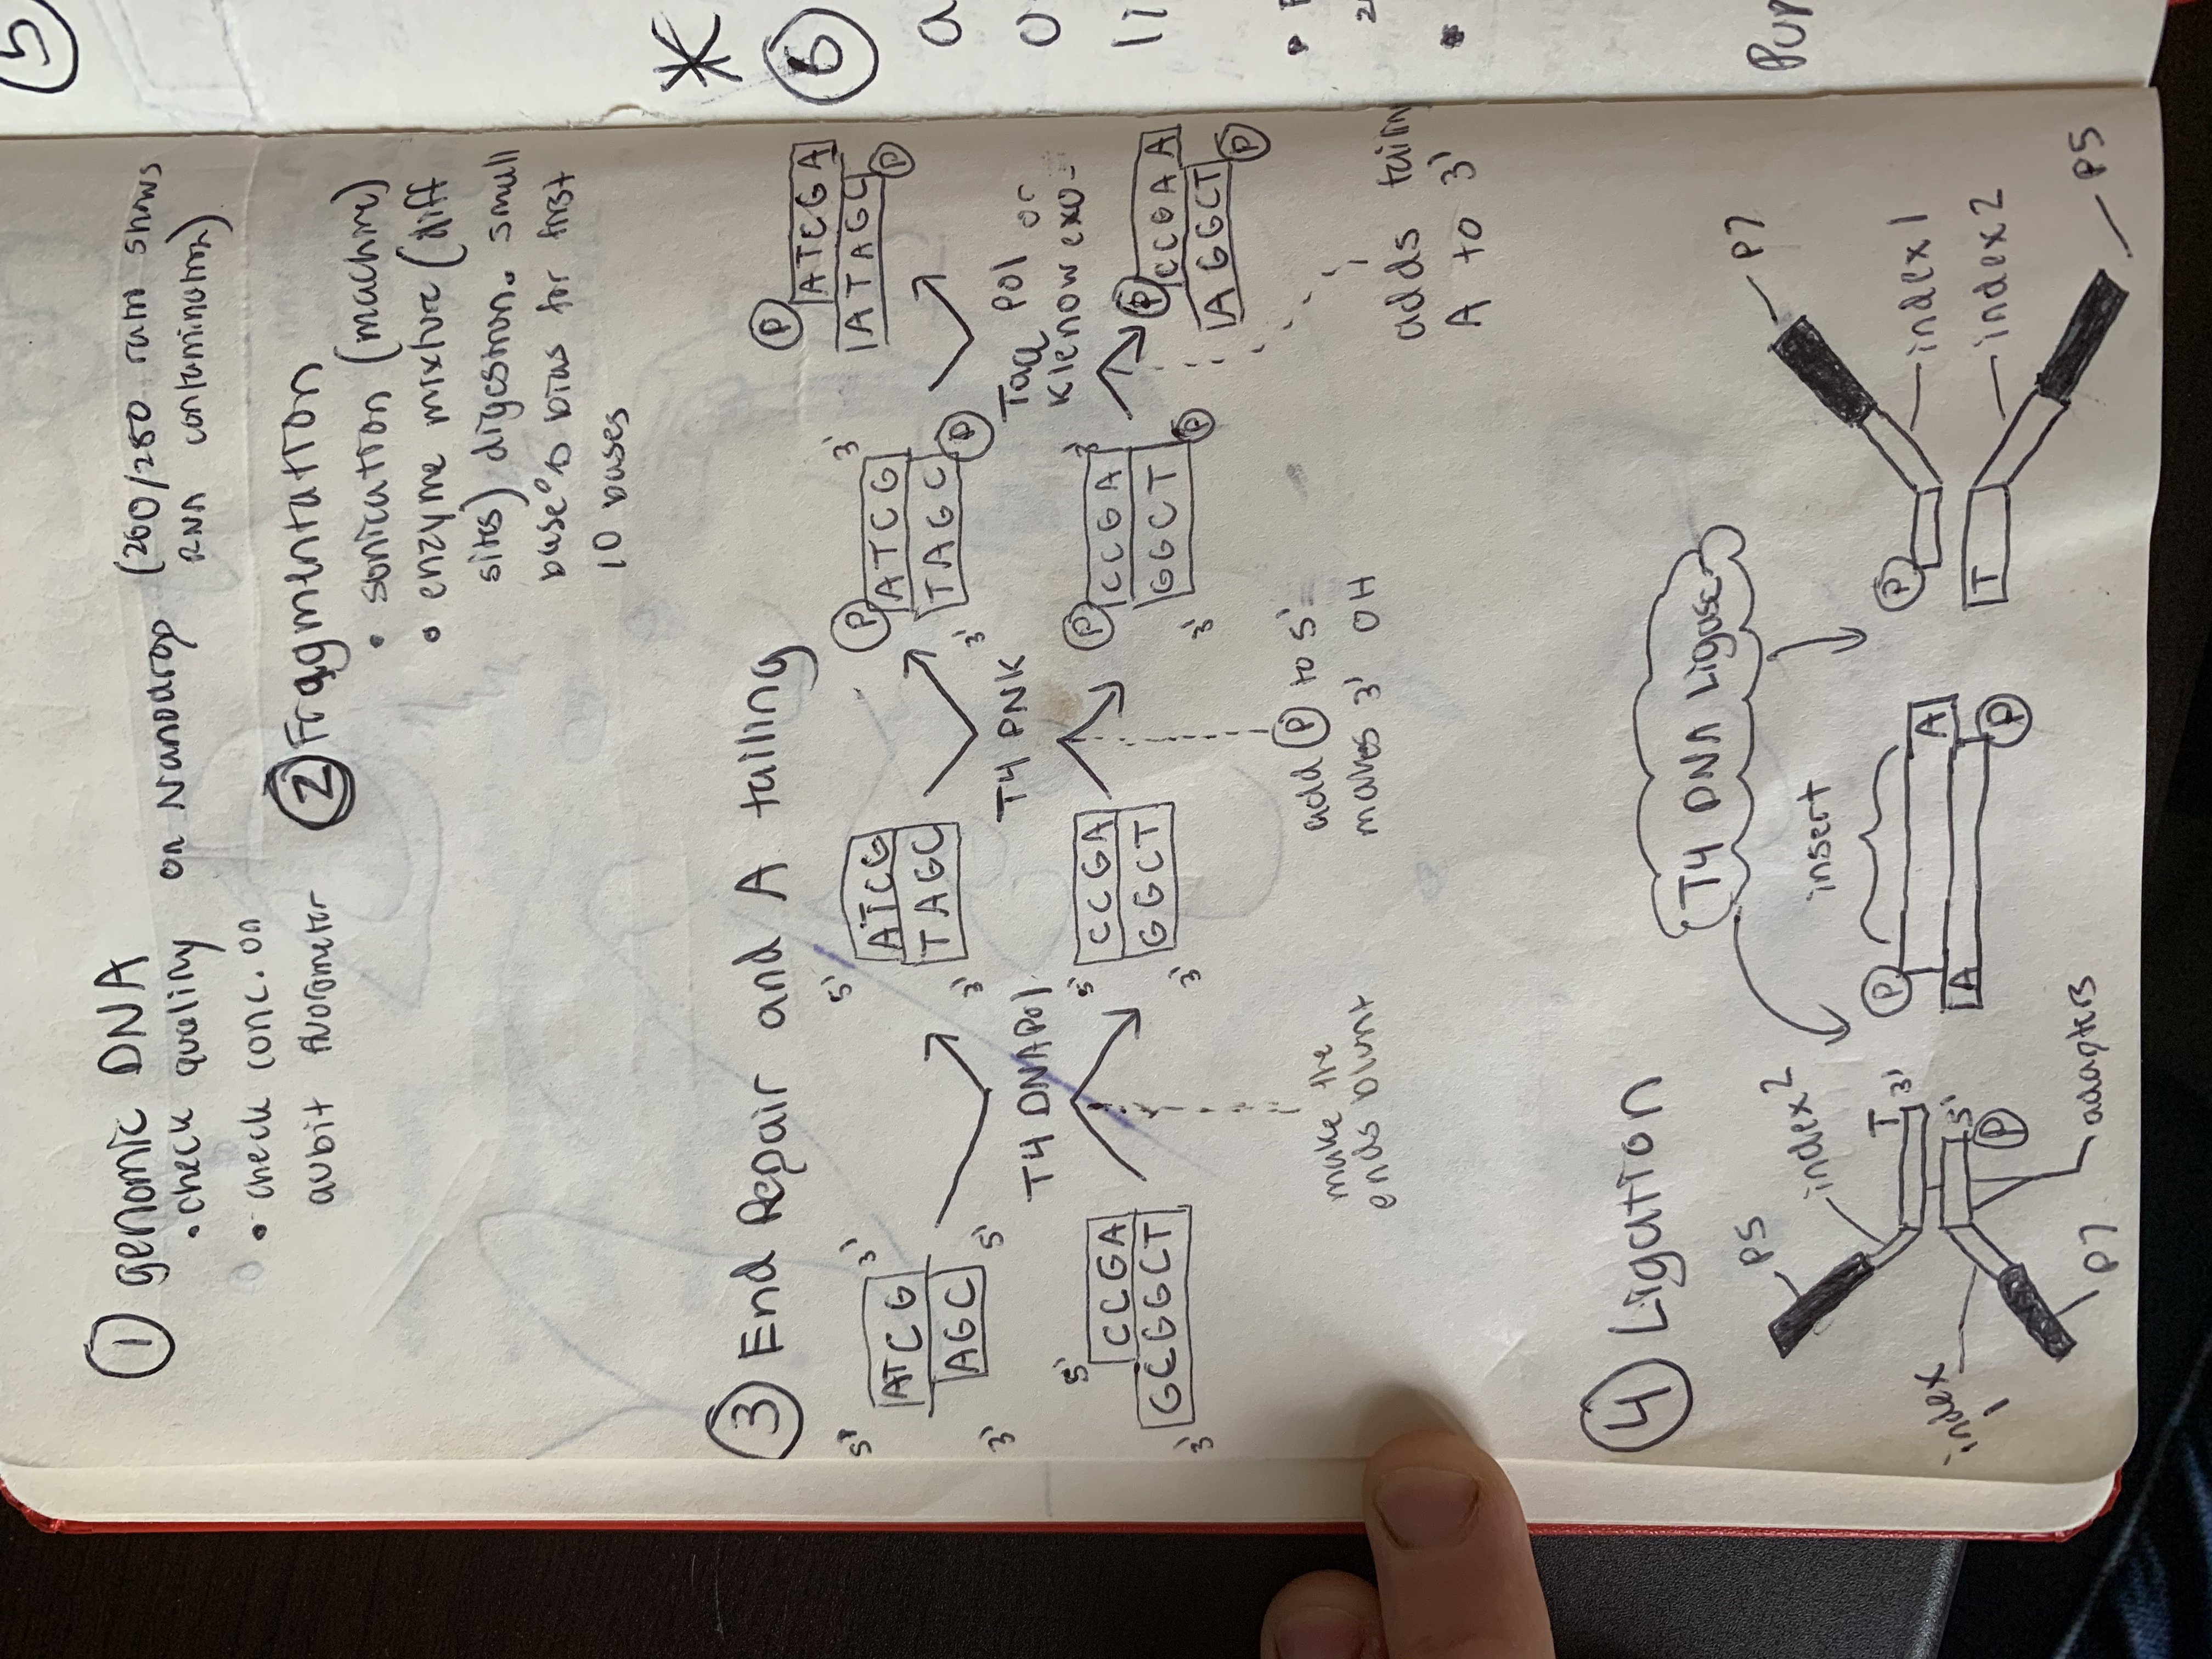 ① genomic DNA
• check quality on Nanodrop (260/280 ratio shows
RNA contamination)
• check conc. on
qubit fluorometer
② Fragmentation
• sonication (machine)
• enzyme mixture (diff
sites) digestion. small
bias for first
10 bases
③ End Repair and A tailing
5' ATCG 3'
3' AGC 5'
5' ATCG
3' TAGC
P ATCG 3'
3' TAGC P
P ATCGA
ATAGC P
T4 DNA Pol
T4 PNK
Taq Pol or
Klenow exo-
5' CCGA
3' GCGGCT
5' CCGA
3' GGCT
P CCGA 3'
3' GGCT P
P CCGAA
AGGCT P
make the
ends blunt
add P to 5'
makes 3' OH
adds tailing
A to 3'
④ Ligation
T4 DNA Ligase
P5
index 2
T 3'
index
1
5'
P
P7
adapters
insert
P
A
A
P
P7
P
index 1
T
index 2
P5
5
*
6
a
li
Pur